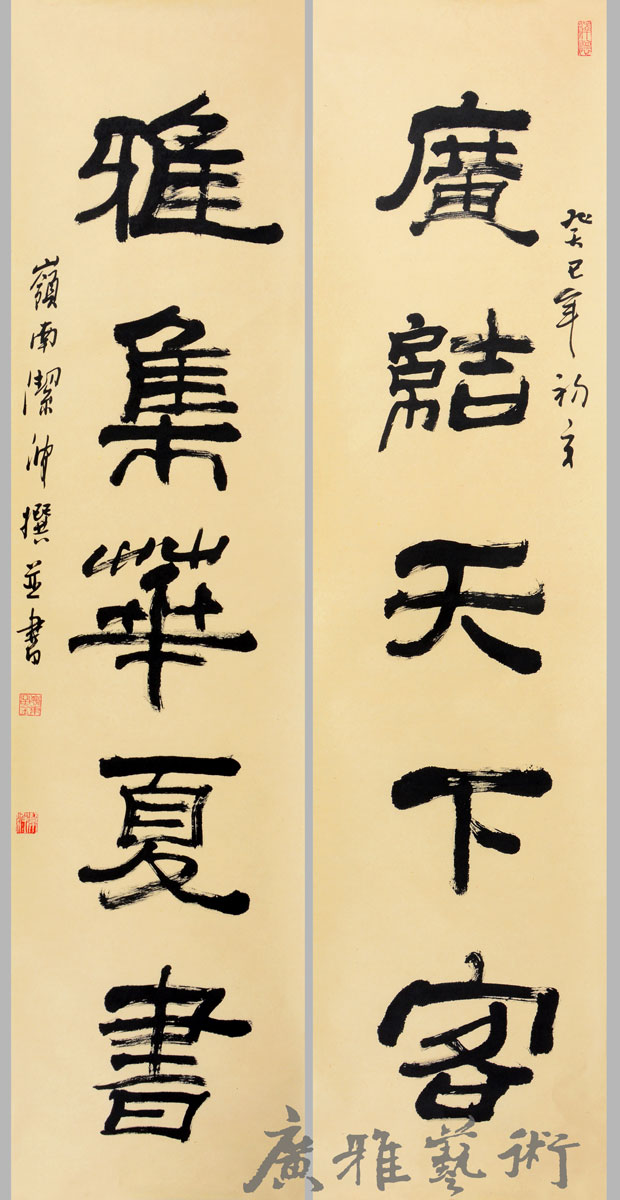 癸巳年初夏
廣結天下客
雅集華夏書
嶺南潔 撰並書
廣雅藝術